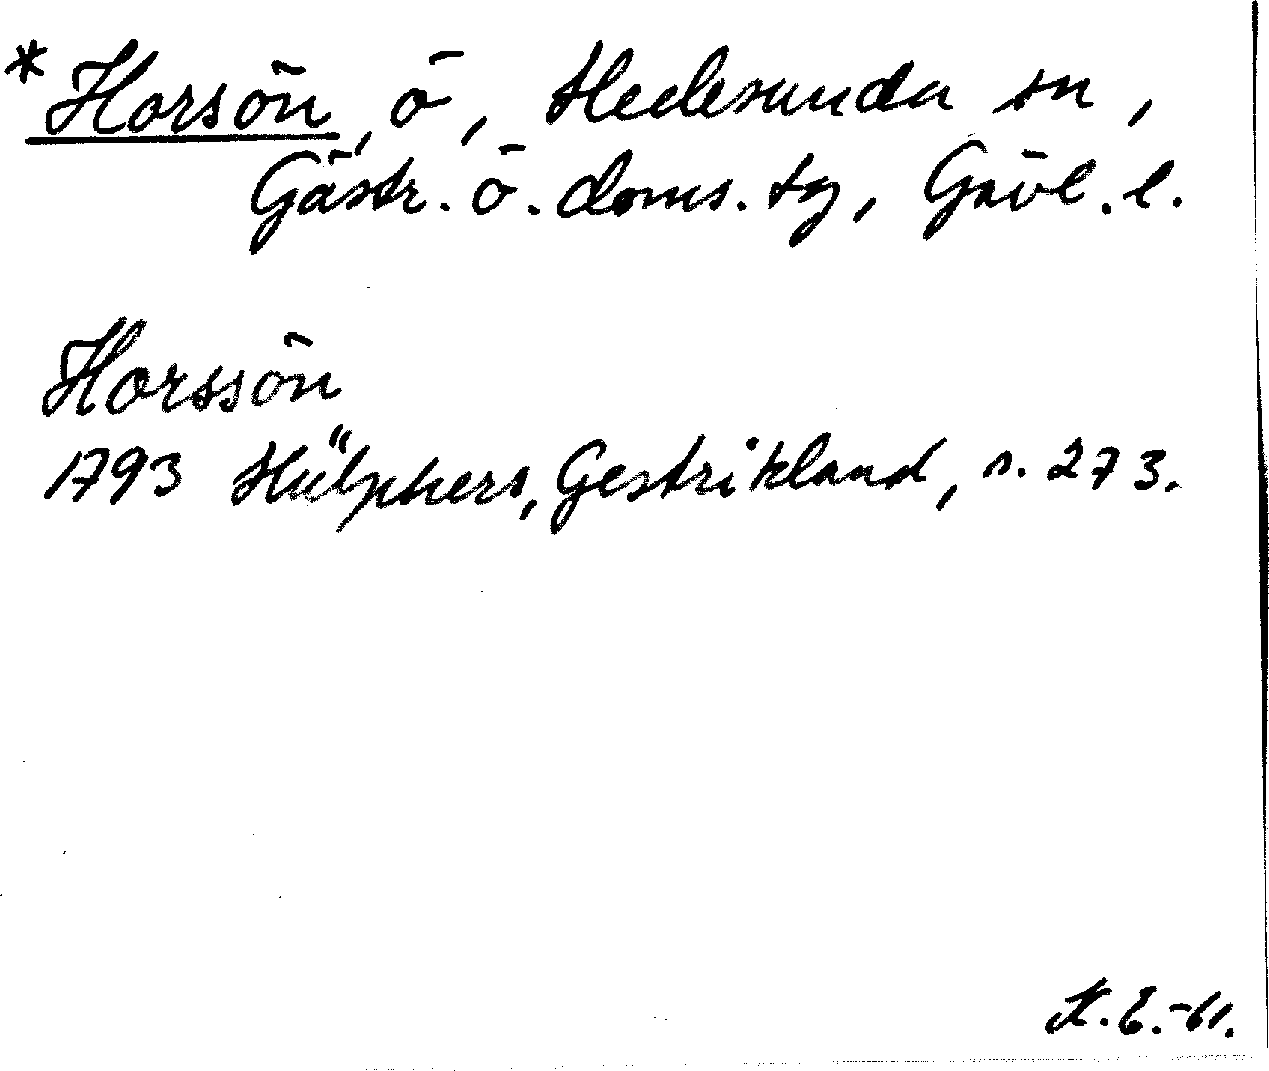 *Horsön, ö, Hedesunda sn,
Gästr. ö. doms. tg, Gävl. l.
Horssön
1793 Hülphers, Gestrikland, s. 273.
K.E.-61.